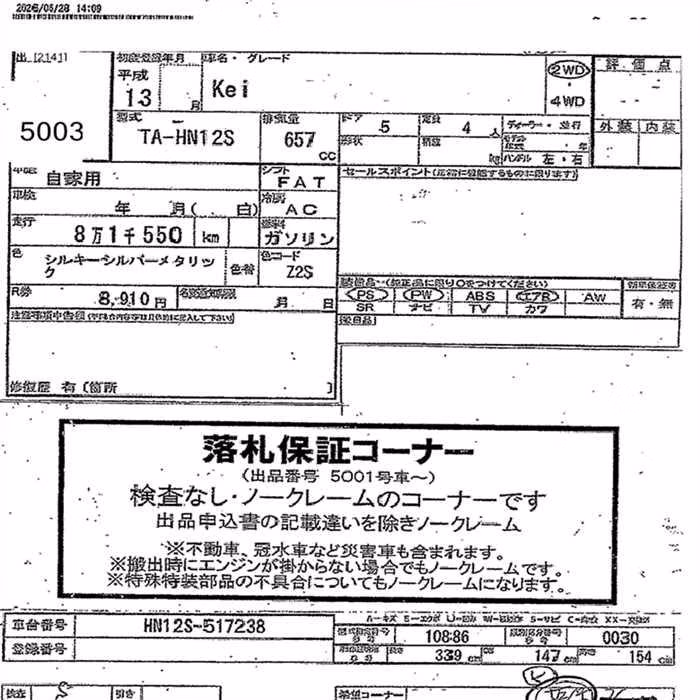 2026/05/28 14:09
出 [2141]
初度登録年月
車名・グレード
評価点
平成
13 月
Kei
2WD
・
4WD
5003
型式
TA-HN12S
排気量
657
cc
ドア
5
定員
4 人
形状
積載
kg
ハンドル 左・右
外装 内装
車歴
自家用
シフト
FAT
セールスポイント
車検
年 月( 日)
冷房
AC
走行
8万1千550 km
燃料
ガソリン
色
シルキーシルバーメタリッ
ク
色替
色コード
Z2S
R券
8,910円
月 日
PS
PW
ABS
エアB
AW
SR
ナビ
TV
カワ
有・無
修復歴 有 (箇所 )
落札保証コーナー
(出品番号 5001号車~)
検査なし・ノークレームのコーナーです
出品申込書の記載違いを除きノークレーム
※不動車、冠水車など災害車も含まれます。
※搬出時にエンジンが掛からない場合でもノークレームです。
※特殊特装部品の不具合についてもノークレームになります。
車台番号
HN12S-517238
登録番号
10886
0030
長さ 339 cm
147 cm
高さ 154 cm
希望コーナー